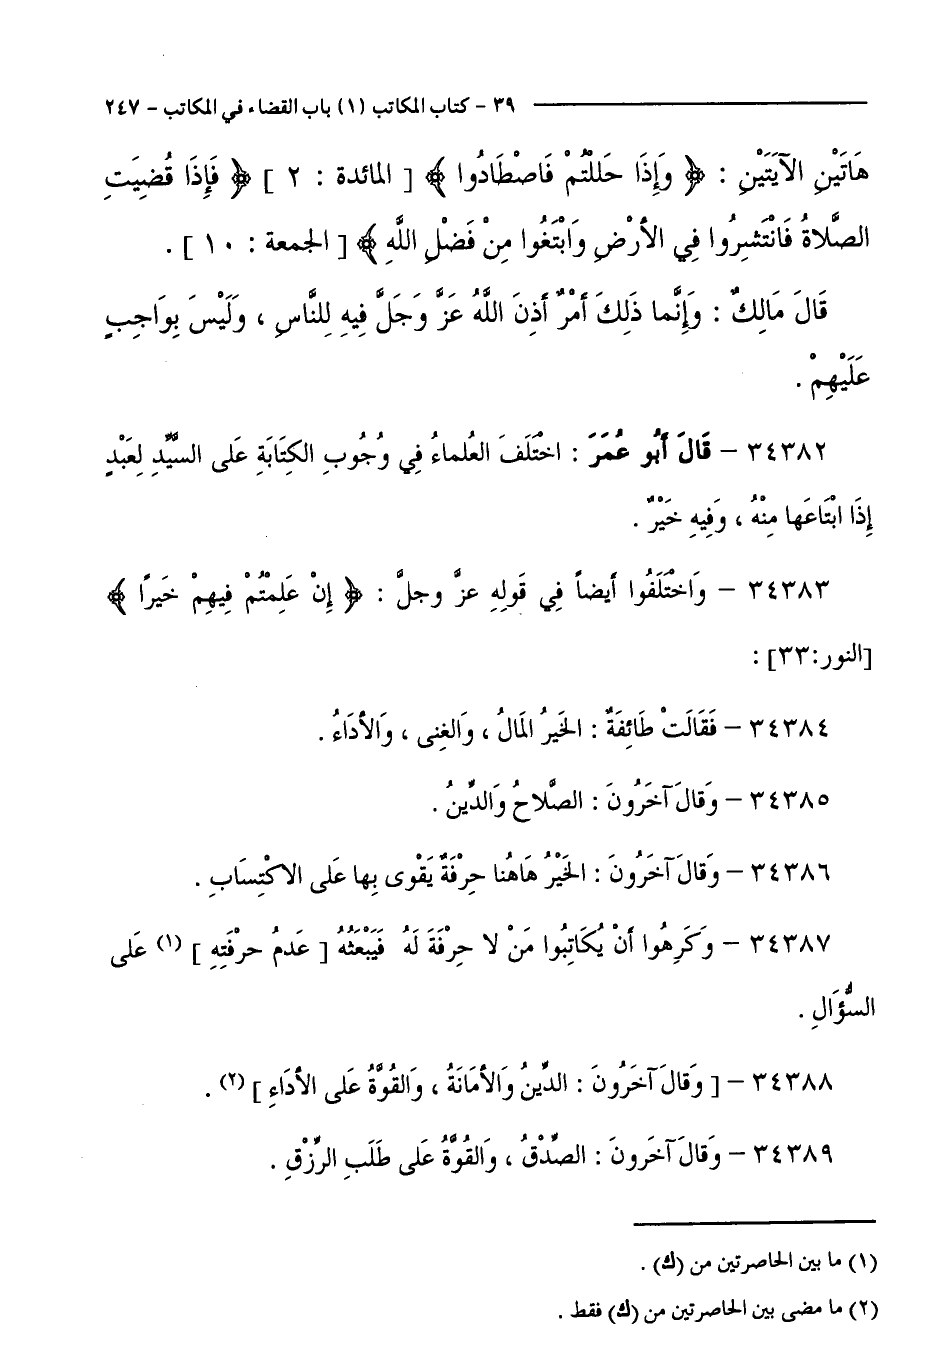 ٣٩ - كتاب المكاتب (١) باب القضاء في المكاتب - ٢٤٧
هَاتَيْنِ الآيَتَيْنِ : ﴿ وَإِذَا حَلَلْتُمْ فَاصْطَادُوا ﴾ [ المائدة : ٢ ] ﴿ فَإِذَا قُضِيَتِ
الصَّلاةُ فَانْتَشِرُوا فِي الأَرْضِ وَابْتَغُوا مِنْ فَضْلِ اللَّهِ ﴾ [ الجمعة : ١٠ ] .
قَالَ مَالِكٌ : وَإِنَّما ذَلِكَ أَمْرٌ أَذِنَ اللَّهُ عَزَّ وَجَلَّ فِيهِ لِلنَّاسِ ، وَلَيْسَ بِوَاجِبٍ
عَلَيْهِمْ .
٣٤٣٨٢ - قَالَ أَبُو عُمَرَ : اخْتَلَفَ العُلماءُ فِي وُجُوبِ الكِتَابَةِ عَلى السَّيِّدِ لِعَبْدِهِ
إِذَا ابْتَاعَها مِنْهُ ، وَفِيهِ خَيْرٌ .
٣٤٣٨٣ - وَاخْتَلَفُوا أيضاً فِي قَولِهِ عزَّ وجلَّ : ﴿ إِنْ عَلِمْتُمْ فِيهِمْ خَيرًا ﴾
[النور:٣٣] :
٣٤٣٨٤ - فَقَالَتْ طَائِفَةٌ : الخَيرُ المَالُ ، وَالغِنى ، وَالأدَاءُ .
٣٤٣٨٥ - وَقالَ آخَرُونَ : الصَّلاحُ وَالدِّينُ .
٣٤٣٨٦ - وَقالَ آخَرُونَ : الخَيْرُ هَاهُنا حِرْفَةٌ يَقْوى بِها عَلى الاكْتِسَابِ .
٣٤٣٨٧ - وَكَرِهُوا أَنْ يُكَاتِبُوا مَنْ لا حِرْفَةَ لَهُ فَيَبْعَثُهُ [ عَدمُ حرْفَتِهِ ] (١) عَلى
السُّؤَالِ .
٣٤٣٨٨ - [ وَقالَ آخَرُونَ : الدِّينُ وَالأمَانَةُ ، وَالقُوَّةُ عَلى الأدَاءِ ] (٢) .
٣٤٣٨٩ - وَقالَ آخَرونَ : الصِّدْقُ ، وَالقُوَّةُ عَلى طَلَبِ الرِّزْقِ .
(١) ما بين الحاصرتين من (ك) .
(٢) ما مضى بين الحاصرتين من (ك) فقط .